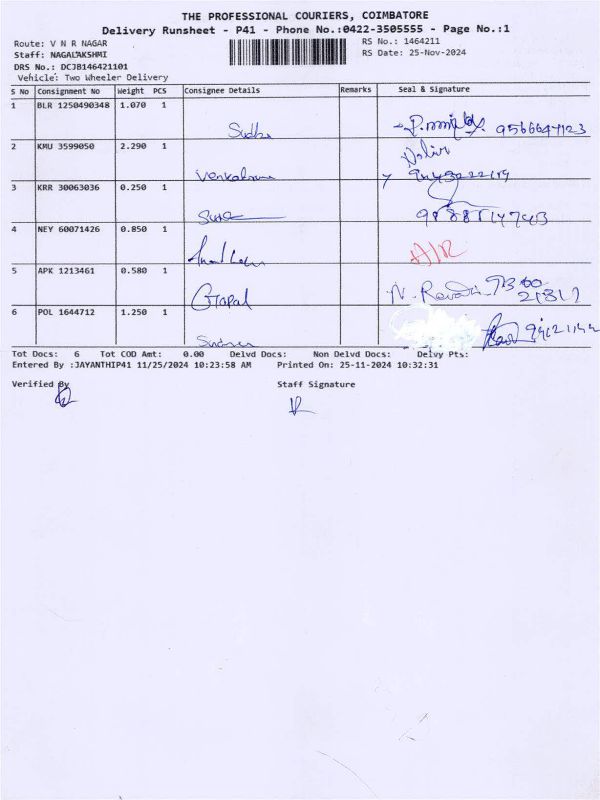 THE PROFESSIONAL COURIERS, COIMBATORE
Delivery Runsheet - P41 - Phone No.:0422-3505555 - Page No.:1
Route: V N R NAGAR
RS No.: 1464211
Staff: NAGALAKSHMI
RS Date: 25-Nov-2024
DRS No.: DCJB146421101
Vehicle: Two Wheeler Delivery
S No Consignment No Weight PCS Consignee Details Remarks Seal & Signature
1 BLR 1250490348 1.070 1 Sudha
2 KMU 3599050 2.290 1
3 KRR 30063036 0.250 1
4 NEY 60071426 0.850 1 AIR
5 APK 1213461 0.580 1 Gopal N. Revathi
6 POL 1644712 1.250 1
Tot Docs: 6 Tot COD Amt: 0.00 Delvd Docs: Non Delvd Docs: Delvy Pts:
Entered By :JAYANTHIP41 11/25/2024 10:23:58 AM Printed On: 25-11-2024 10:32:31
Verified By Staff Signature